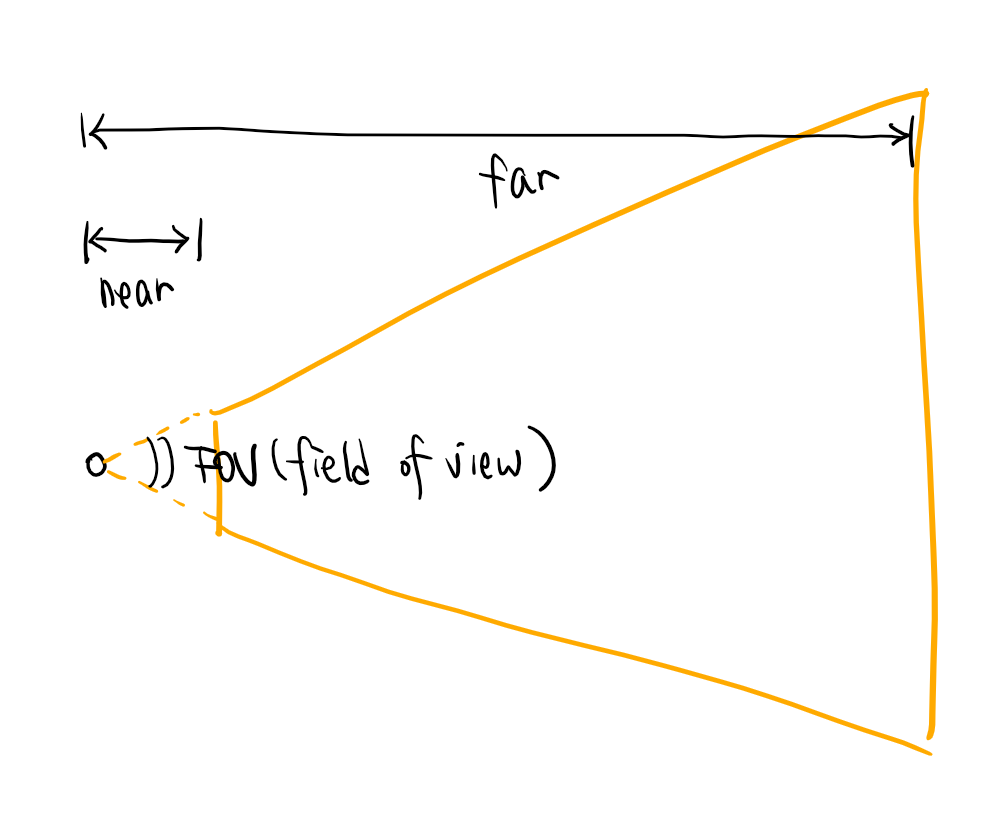 far
near
FOV (field of view)